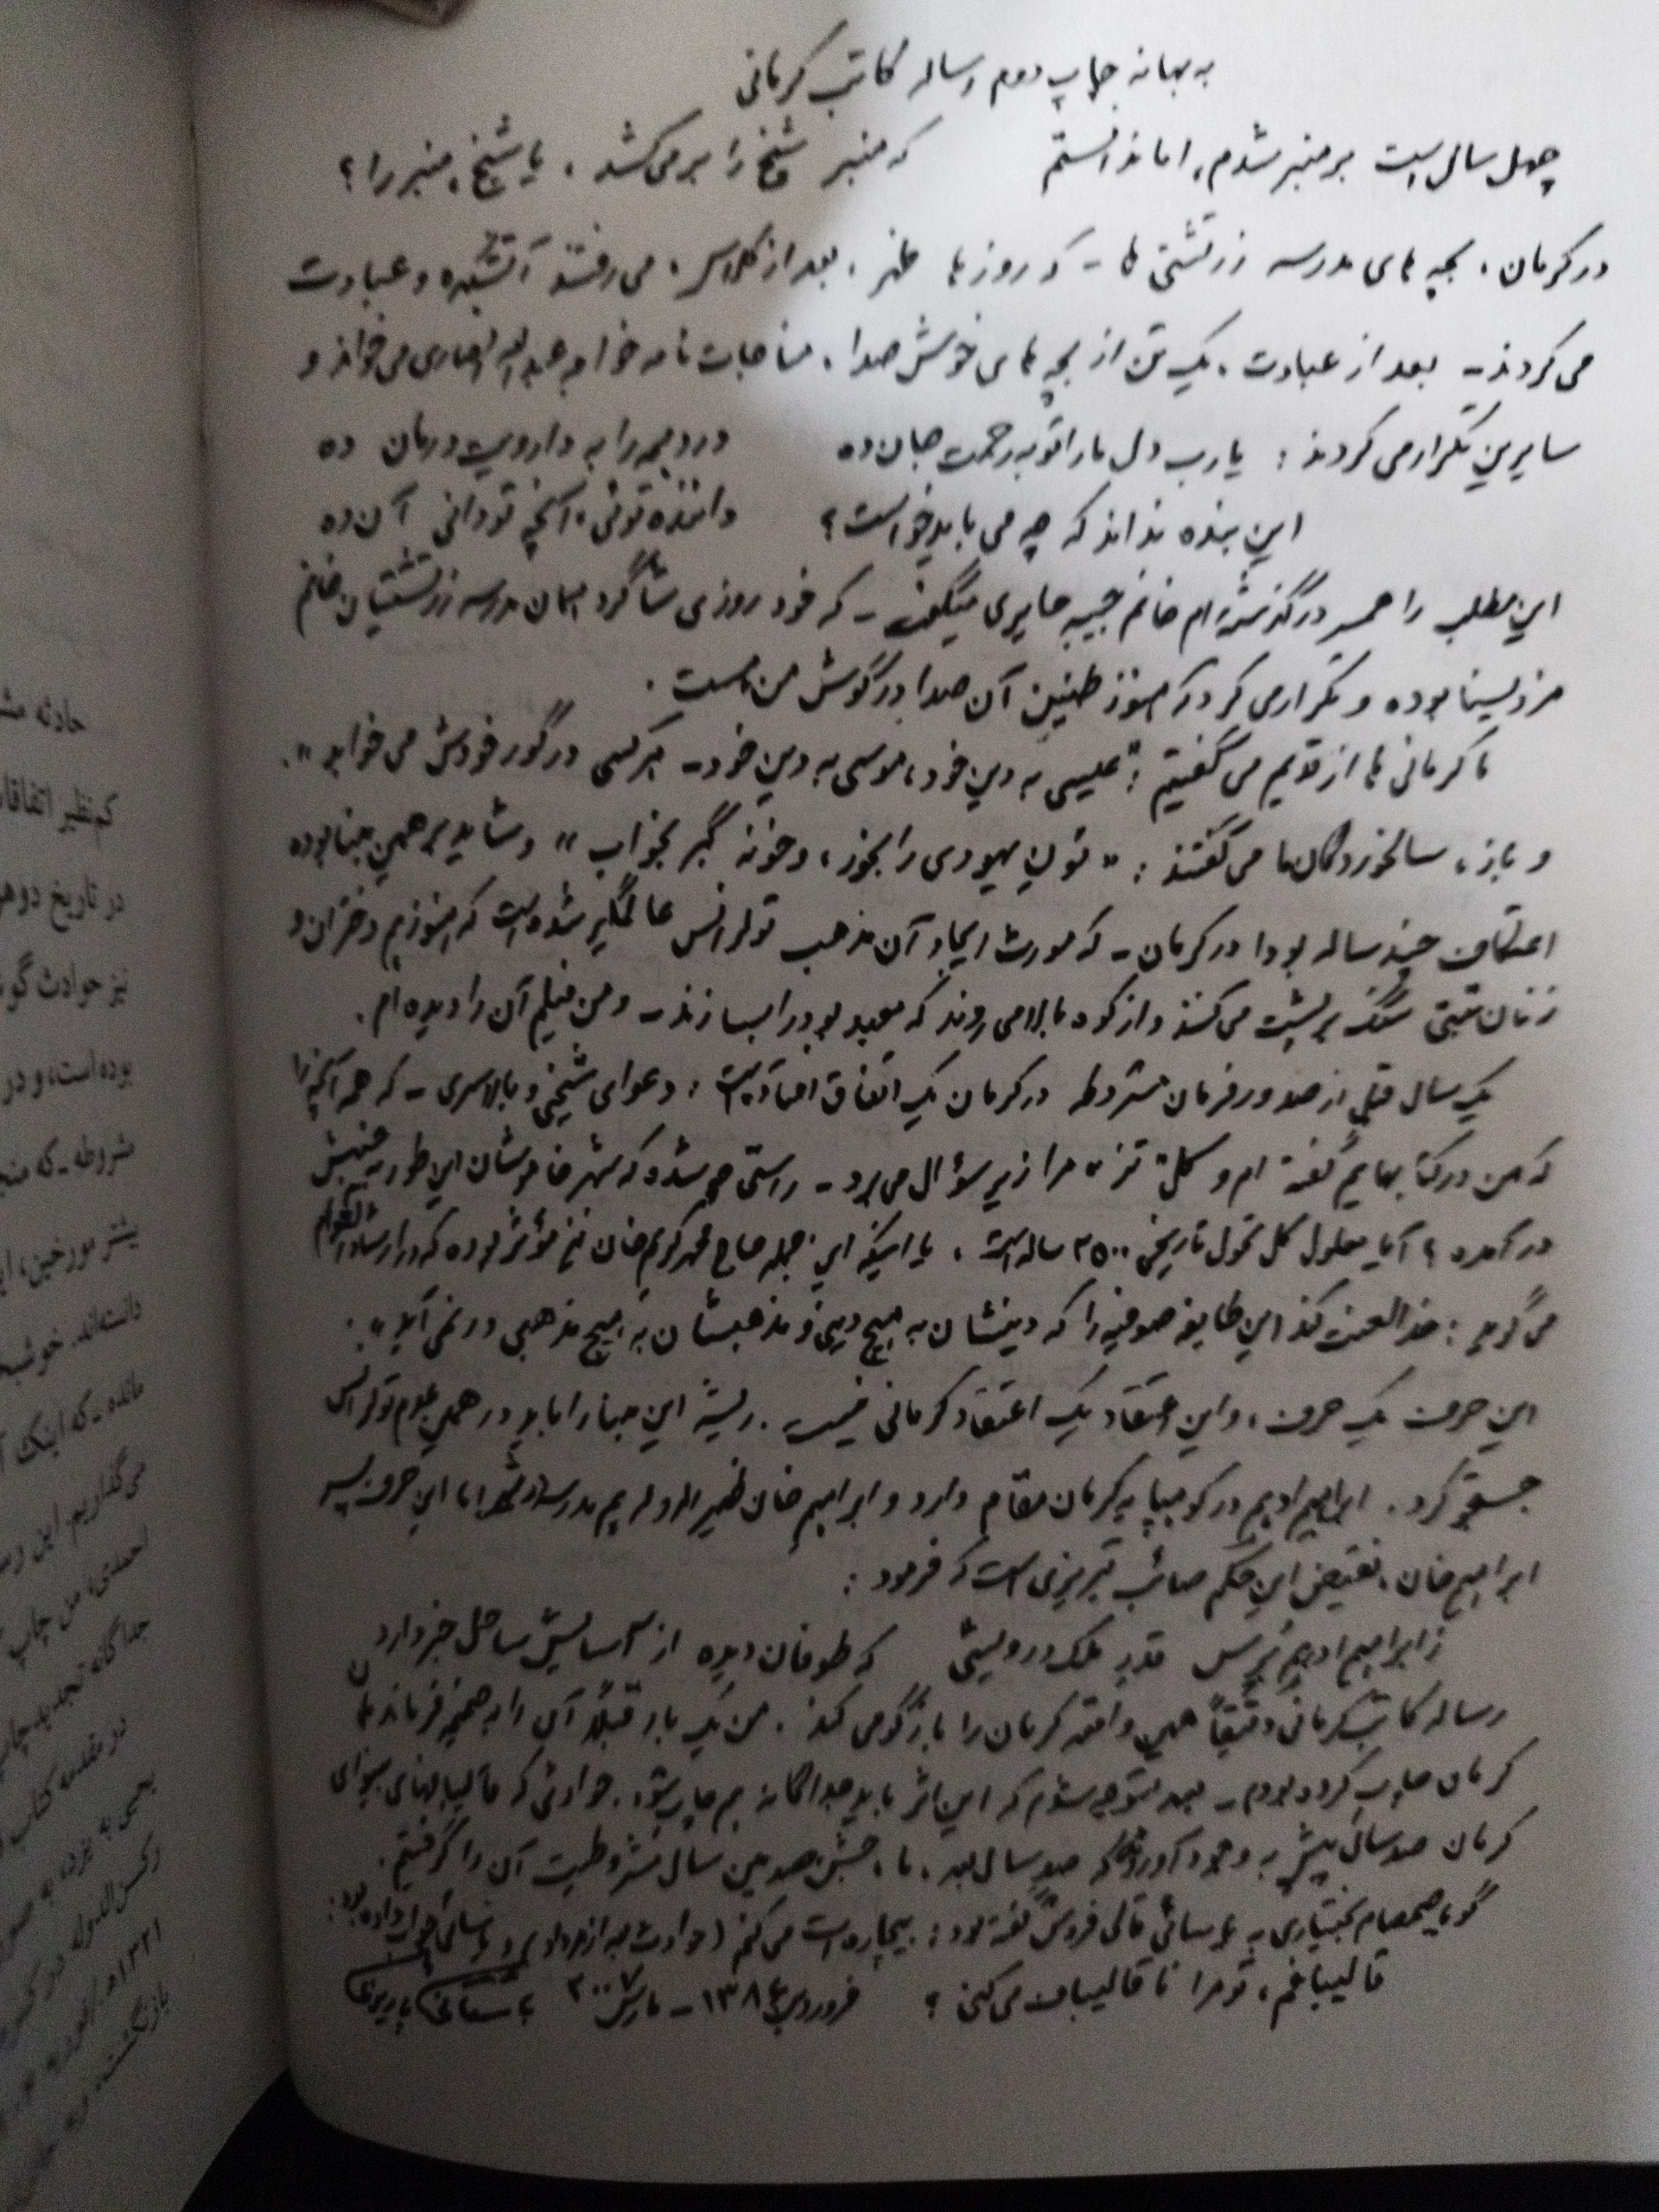 به بهانه چاپ دوم رساله کاتب کرمانی
چهل سال است بر منبر شدم، اما ندانستم که منبر شیخ را بر می‌کشد، یا شیخ، منبر را؟
در کرمان، بچه های مدرسه زرتشتی ها - که روزها ظهر، بعد از کلاس، می رفتند آتشکده و عبادت
می کردند - بعد از عبادت، یک تن از بچه های خوش صدا، مناجات نامه خواجه عبدالله انصاری می خواند و
سایرین تکرار می کردند: یارب دل ما را تو به رحمت جان ده درد همه را به داروی درمان ده
این بنده نداند که چه می باید خواست؟ داننده توئی، آنچه تو دانی آن ده
این مطلب را همسر درگذشته ام خانم حبیبه حایری میگفت - که خود روزی شاگرد همان مدرسه زرتشتیان خانم
بوده و تکرار می کرد که هنوز طنین آن صدا در گوش من است.
ما کرمانی ها از قدیم می گفتیم: "عیسی به دین خود، موسی به دین خود - هر کسی در گور خودش می خوابد".
و باز، سالخوردگان ما می گفتند: «نون یهودی را بخور، و خونه گبر بخواب» و شاید بر همین مبنا بوده
اعتکاف چند ساله بودا در کرمان - که مورث ایجاد آن مذهب تولرانس عالمگیر شده است که هنوز هم دختران و
زنان تبتی سنگ بر پشت می کشند و از کوه بالا می روند که معبد بودا را بسازند - و من فیلم آن را دیده ام.
یک سال قبل از صدور فرمان مشروطه در کرمان یک اتفاق افتاده است: دعوای شیخی و بالاسری - که همه آنچه را
که من در کتابهایم گفته ام و کل تز مرا زیر سؤال می برد - راستی چه شده که شهر خاموشان این طور به جنبش
در آمده؟ آیا معلول کل تحول تاریخی ۲۵۰۰ ساله است، یا اینکه این جمله حاج محمد کریم خان نیز مؤثر بوده که در ارشاد العوام
می گوید: خدا لعنت کند این طایفه صوفیه را که دینشان به هیچ دینی و مذهبشان به هیچ مذهبی در نمی آید".
این حرف یک حرف، و این اعتقاد یک اعتقاد کرمانی نیست. ریشه این مبنا را باید در همین تولرانس
جستجو کرد. ابراهیم ادهم در کوهپایه کرمان مقام دارد و ابراهیم خان ظهیرالدوله هم مدرسه اما این حرف پسر
ابراهیم خان، نقیض این حکم صائب تبریزی است که فرمود:
ز ابراهیم ادهم پرس قدر ملک درویشی که طوفان دیده از آسایش ساحل خبر دارد
رساله کاتب کرمانی دقیقاً همین واقعه کرمان را بازگو می کند. من یک بار قبلاً آن را به ضمیمه فرماندهان
کرمان چاپ کرده بودم - بعد متوجه شدم که این اثر باید جداگانه هم چاپ شود. حوادثی که قالیبافهای بینوای
کرمان صد سال پیش به وجود آوردند که صد سال بعد، ما، جشن صدمین سال مشروطیت آن را گرفتیم.
گویا صمصام بختیاری به قالی فروش گفته بود: بیچاره ات می کنم
قالیبافم، تو مرا ناقالیباف می کنی؟ فروردین ۱۳۸۶ - مارس ۲۰۰۷ باستانی پاریزی